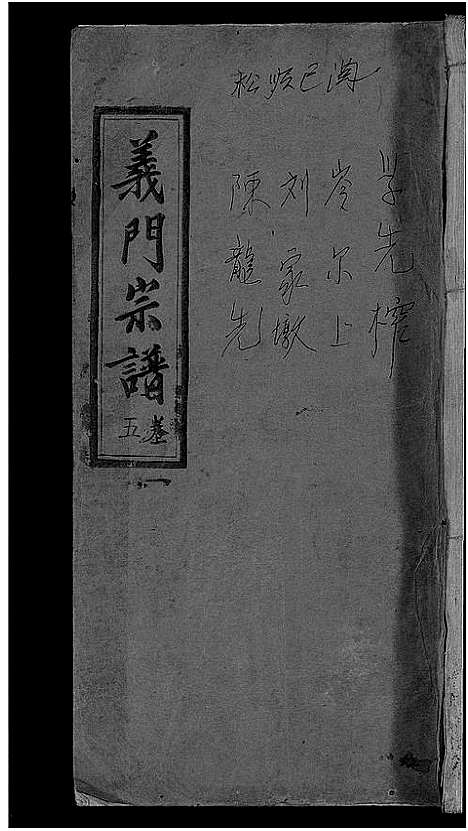 松版已阅
学先榨
岑尔上
刘家墩
陳龍先
義門宗譜
卷五
一